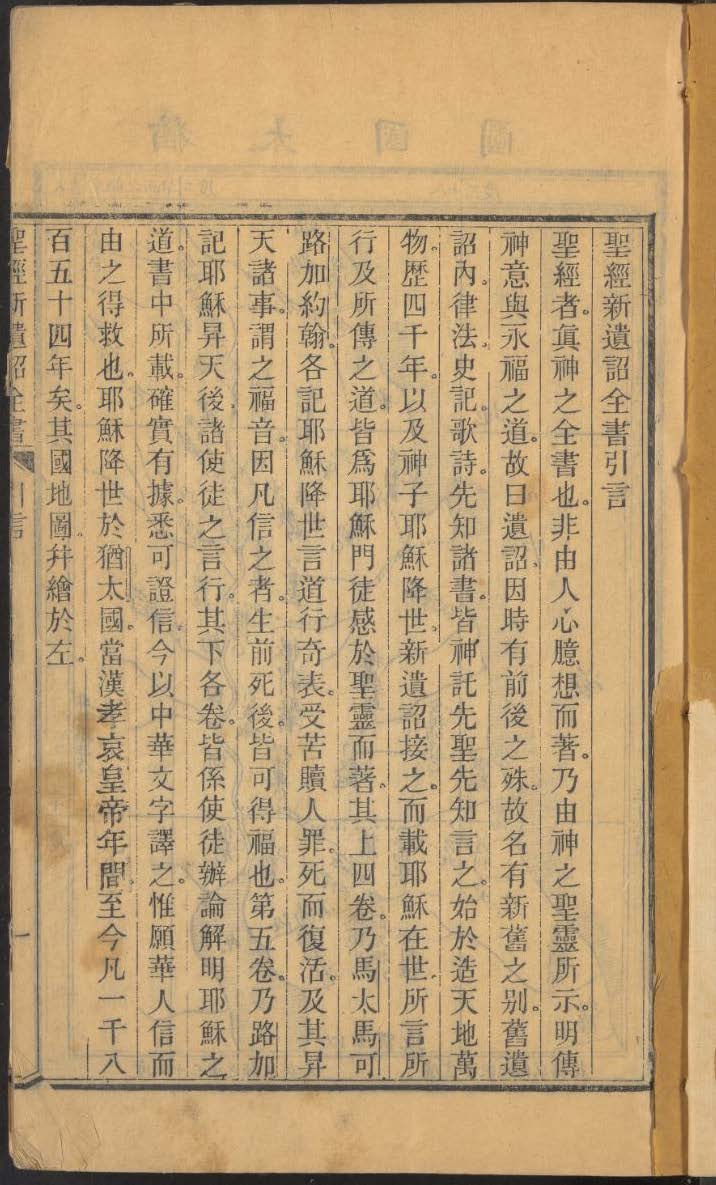 聖經新遺詔全書引言
聖經者。眞神之全書也。非由人心臆想而著。乃由神之聖靈所示。明傳
神意與永福之道。故曰遺詔。因時有前後之殊。故名有新舊之别。舊遺
詔內。律法史記。歌詩。先知諸書。皆神託先聖先知言之。始於造天地萬
物。歷四千年。以及神子耶穌降世。新遺詔接之。而載耶穌在世。所言所
行及所傳之道。皆爲耶穌門徒感於聖靈而著。其上四卷。乃馬太馬可
路加約翰。各記耶穌降世言道行奇表。受苦贖人罪。死而復活。及其昇
天諸事。謂之福音。因凡信之者。生前死後。皆可得福也。第五卷。乃路加
記耶穌昇天後。諸使徒之言行。其下各卷。皆係使徒辦論解明耶穌之
道。書中所載。確實有據。悉可證信。今以中華文字譯之。惟願華人信而
由之得救也。耶穌降世於猶太國。當漢孝哀皇帝年間。至今凡一千八
百五十四年矣。其國地圖。幷繪於左。
聖經新遺詔全書 引言 一